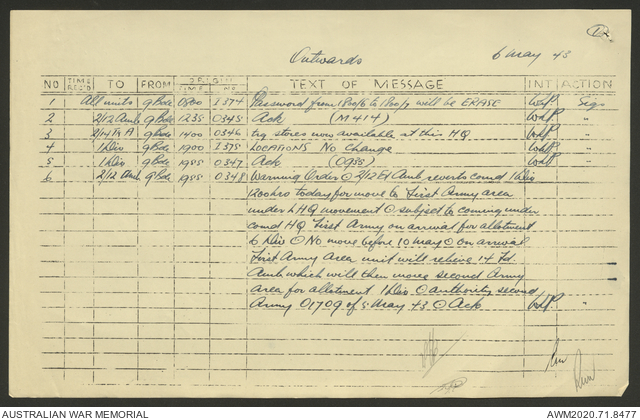 Outwards 6 May 43
NO TIME REC'D TO FROM ORIGIN TIME NO. TEXT OF MESSAGE INT ACTION
1 All units 9 Bde 0800 I374 Password from 1800/6 to 1800/7 will be ERASE WHP Sigs
2 2/12 Amb 9 Bde 1235 0345 Ack (M414) WHP "
3 9 Bde 1400 0346 Trg stores now available at this HQ WHP "
4 1 Div 9 Bde 1900 I375 LOCATIONS No Change WHP "
5 1 Div 9 Bde 1955 0347 Ack WHP "
6 2/12 Amb 9 Bde 1955 0348 Warning Order O 2/12 Fd Amb reverts comd 1 Div
1200 hrs today for move to First Army area
under LHQ movement O subject to coming under
comd HQ First Army on arrival for allotment
6 Div O No move before 10 May O on arrival
First Army Area unit will relieve 14 Fd.
Amb which will then move second Army
area for allotment 1 Div O authority second
Army O1709 of 5 May 43 O Ack WHP "
AUSTRALIAN WAR MEMORIAL AWM2020.71.8477